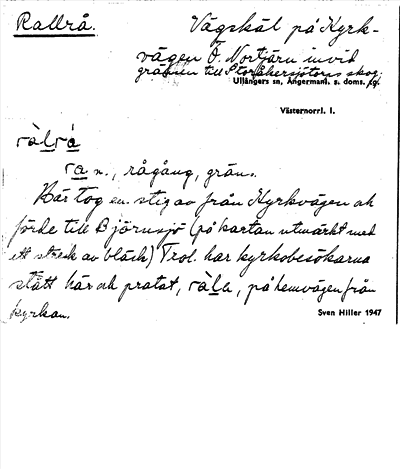 Rallrå.
Vägskäl på Kyrk-
vägen Ö. Nortjärn invid
gränsen till Storåkersjötorns skog.
Ullångers sn, Ångermanl. s. doms. tg.
Västernorrl. l.
ràlrá
ra n., rågång, gräns.
Här tog en stig av från Kyrkvägen ok
förde till Björnsjö (på kartan utmärkt med
ett streck av bläck) Trol. har kyrkobesökarna
stått här ok pratat, ràla, på hemvägen från
kyrkan.
Sven Hiller 1947